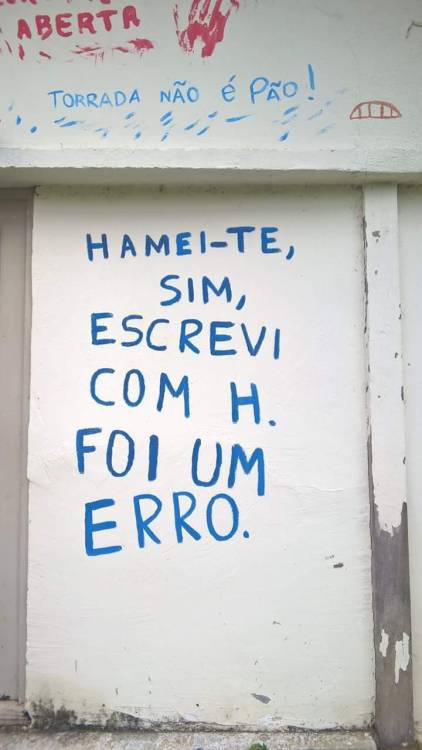 ABERTA
TORRADA NÃO É PÃO!
HAMEI-TE,
SIM,
ESCREVI
COM H.
FOI UM
ERRO.